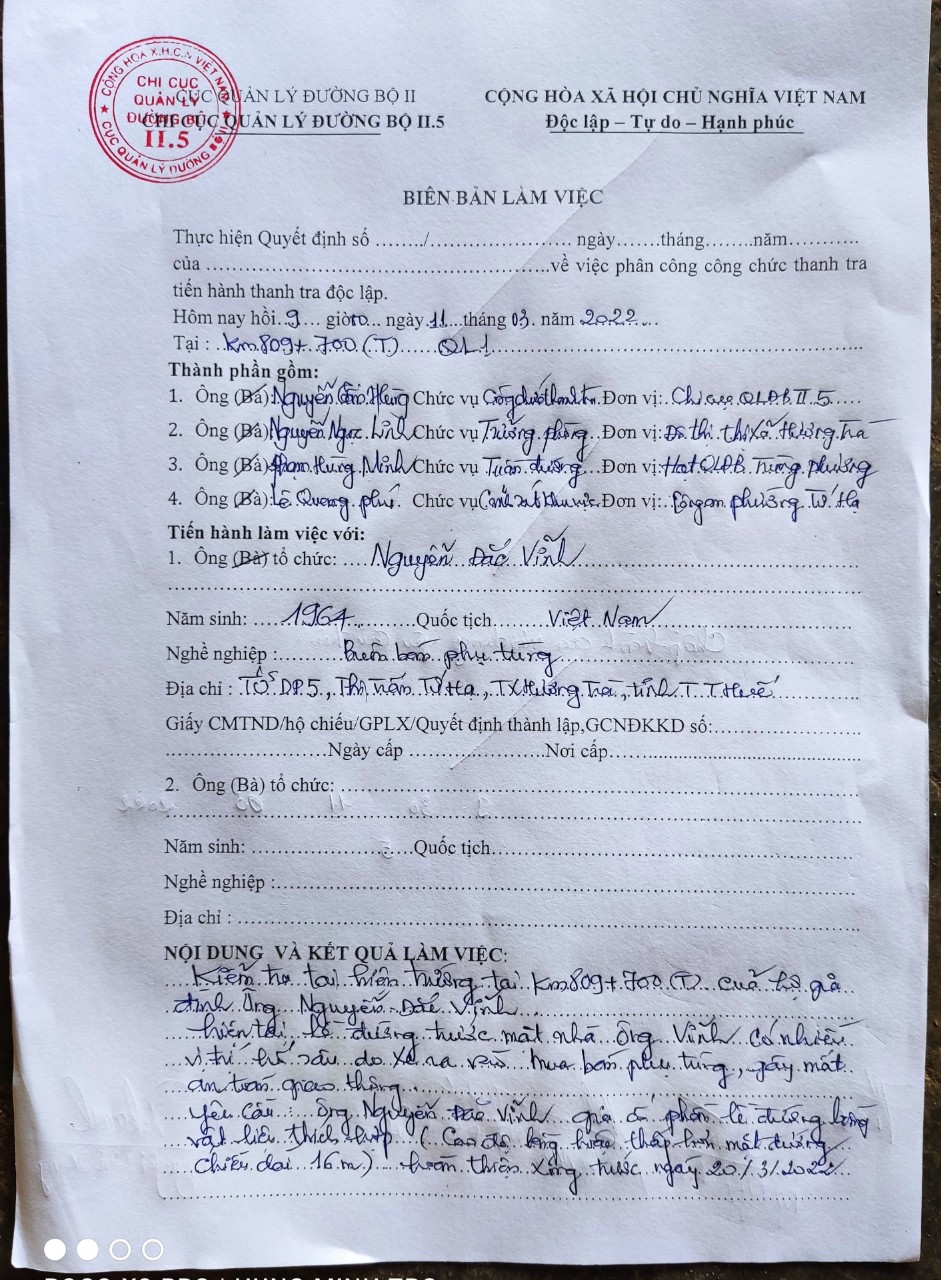 CỘNG HÒA X.H.C.N VIỆT NAM
CHI CỤC
QUẢN LÝ
ĐƯỜNG BỘ
II.5
CỤC QUẢN LÝ ĐƯỜNG BỘ II
CỤC QUẢN LÝ ĐƯỜNG BỘ II
CHI CỤC QUẢN LÝ ĐƯỜNG BỘ II.5
CỘNG HÒA XÃ HỘI CHỦ NGHĨA VIỆT NAM
Độc lập – Tự do – Hạnh phúc
BIÊN BẢN LÀM VIỆC
Thực hiện Quyết định số ......../........................ ngày.......tháng........năm...........
của ..........................................................về việc phân công công chức thanh tra
tiến hành thanh tra độc lập.
Hôm nay hồi..9... giờ00... ngày.11....tháng 03. năm 2022...
Tại : .Km.809+ 700 (T)..... QL1
Thành phần gồm:
1. Ông (Bà): Nguyễn Hùng Chức vụ Công chức thanh tra Đơn vị: Chi cục QLĐB II.5
2. Ông (Bà) Nguyễn Ngọc Linh Chức vụ Trưởng phòng Đơn vị: Đô thị thị xã Hương Trà
3. Ông (Bà) Phạm Hùng Minh Chức vụ Tuần đường Đơn vị: Hạt QLĐB
4. Ông (Bà): Lê Quang Phú Chức vụ Cảnh sát khu vực Đơn vị: Công an phường Tứ Hạ
Tiến hành làm việc với:
1. Ông (Bà) tổ chức: .... Nguyễn Đắc Vĩnh
Năm sinh: ....1964........ Quốc tịch........ Việt Nam
Nghề nghiệp :........ Buôn bán phụ tùng
Địa chỉ : Tổ DP.5, Thị trấn Tứ Hạ, TX Hương Trà, tỉnh T.T Huế
Giấy CMTND/hộ chiếu/GPLX/Quyết định thành lập,GCNĐKKD số:........................
...........................Ngày cấp ........................Nơi cấp........................
2. Ông (Bà) tổ chức: ........................
Năm sinh: ........................Quốc tịch........................
Nghề nghiệp :........................
Địa chỉ : ........................
NỘI DUNG VÀ KẾT QUẢ LÀM VIỆC:
Kiểm tra tại hiện trường tại Km809+700 (T) của hộ gia
đình Ông Nguyễn Đắc Vĩnh
hiện tại lề đường trước mặt nhà ông Vĩnh có nhiều
vị trí hố sâu do xe ra vào mua bán phụ tùng, gây mất
an toàn giao thông.
Yêu cầu : ông Nguyễn Đắc Vĩnh gia cố phần lề đường bằng
vật liệu thích hợp (Cao độ bằng hoặc thấp hơn mặt đường
chiều dài 16 m) hoàn thiện xong trước ngày 20/3/2022